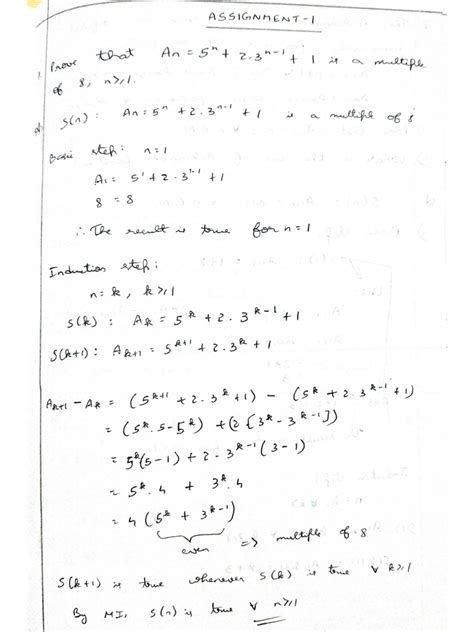 ASSIGNMENT-1
1. Prove that An = 5^n + 2·3^(n-1) + 1 is a multiple
of 8, n≥1.
S(n): An = 5^n + 2·3^(n-1) + 1 is a multiple of 8
Basic step: n=1
A1 = 5^1 + 2·3^(1-1) + 1
8 = 8
∴ The result is true for n=1
Induction step:
n=k, k≥1
S(k): Ak = 5^k + 2·3^(k-1) + 1
S(k+1): Ak+1 = 5^(k+1) + 2·3^k + 1
Ak+1 - Ak = (5^(k+1) + 2·3^k + 1) - (5^k + 2·3^(k-1) + 1)
= (5^k·5 - 5^k) + (2[3^k - 3^(k-1)])
= 5^k(5-1) + 2·3^(k-1)(3-1)
= 5^k·4 + 3^k·4
= 4(5^k + 3^(k-1))
even => multiple of 8
S(k+1) is true whenever S(k) is true ∀ k≥1
By MI, S(n) is true ∀ n≥1